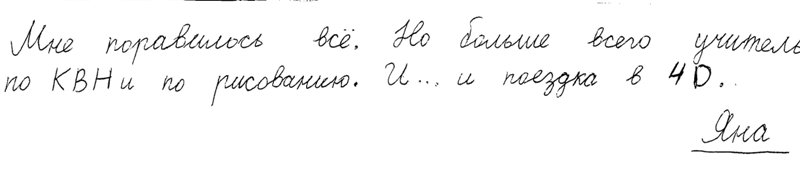 Мне поравилось всё. Но больше всего учитель
по КВН и по рисованию. И... и поездка в 4D.
Яна